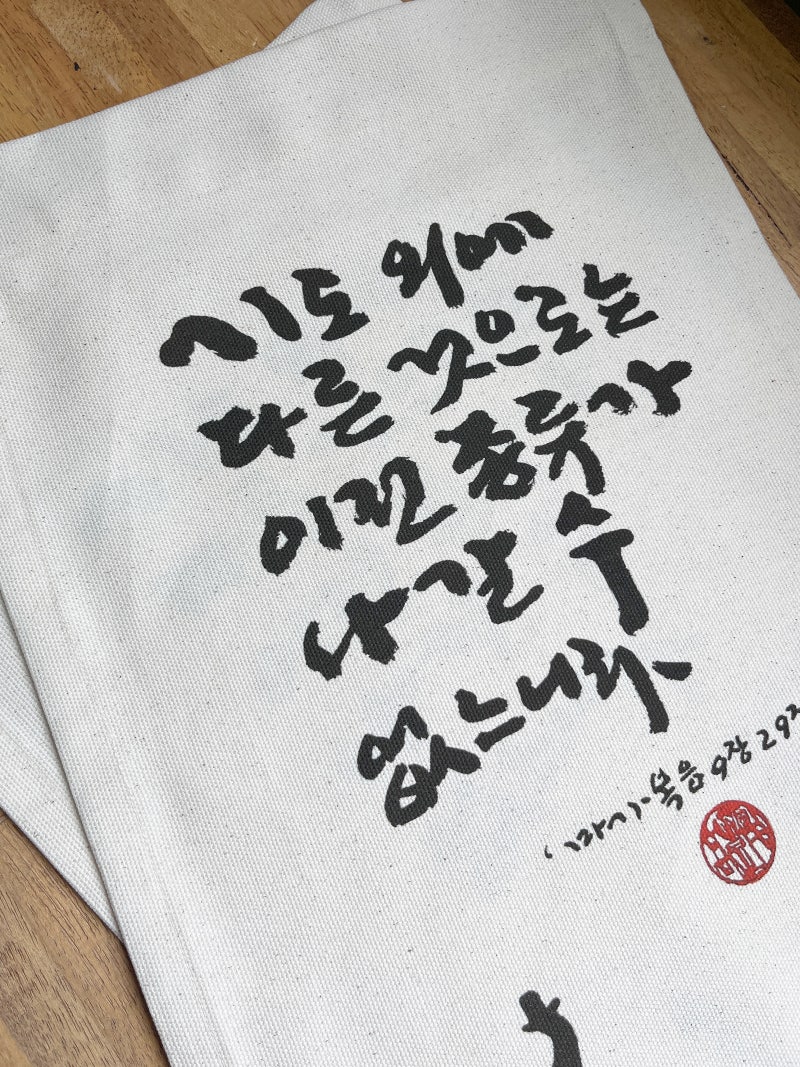 기도 외에
다른 것으로는
이런 종류가
나갈 수
없느니라
마가복음 9장 29절